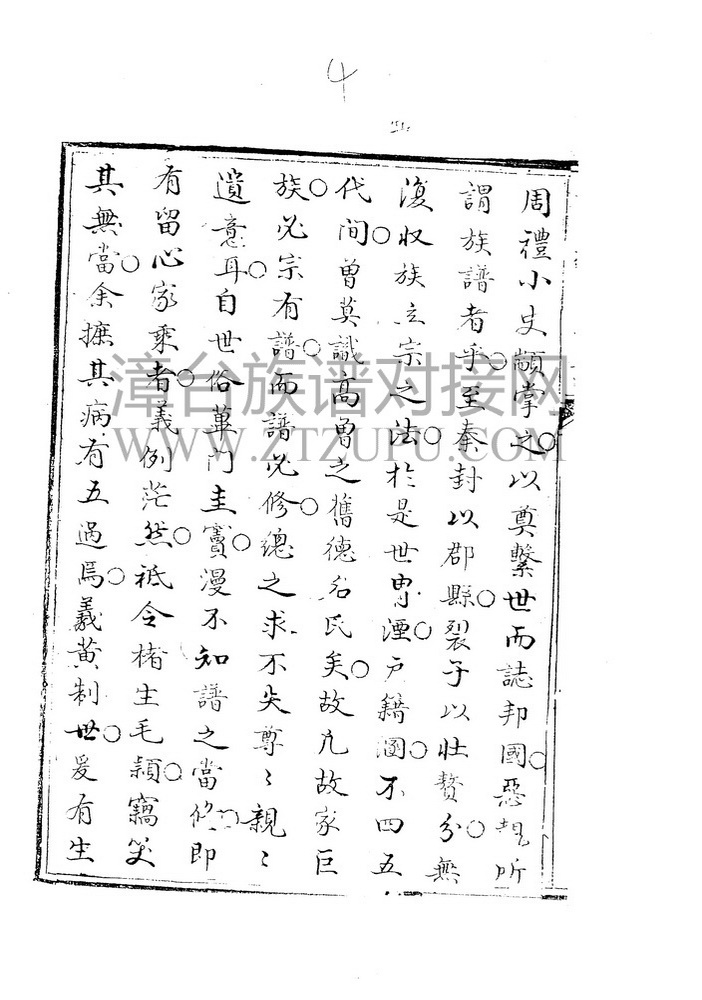 4
周禮小史顓掌之○以奠繫世而誌邦國○惡覩所
謂族譜者乎○至秦封以郡縣○裂子以壯贅分○無
復收族立宗之法○於是世胄湮○戶籍溷○不四五
代間○曾莫識高曾之舊德名氏矣○故凡故家巨
族○必宗有譜○而譜必修○總之求不失尊〻親〻
遺意耳○自世俗蓽門圭竇○漫不知譜之當修○即
有留心家乘者○義例茫然○祗令楮生毛穎○竊笑
其無當○余摭其病有五過焉○羲黃制世○爰有生
漳台族谱对接网
WWW.ZTZUPU.COM